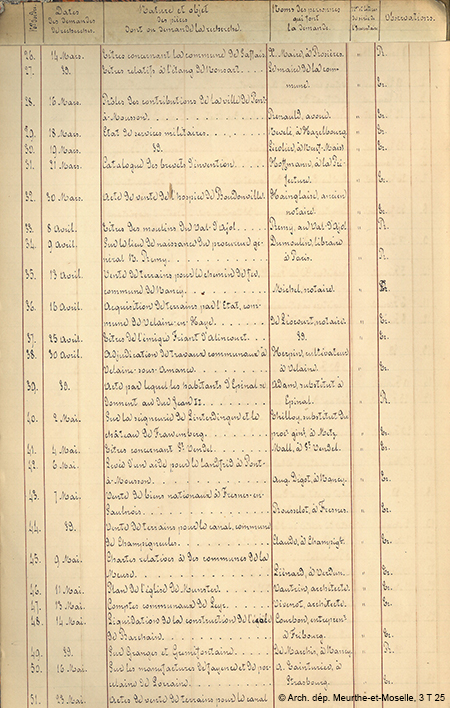 Dates des demandes de recherches.
Nature et objet des pièces dont on demande la recherche.
Noms des personnes qui font la demande.
Observations.
26. 14 Mars. Titres concernant la commune de Saffais. Maire, à Rosières. R.
27. id. Titres relatifs à l'étang de Le maire de la com-
mune. Tr.
28. 16 Mars. Rôles des contributions de la ville de Pont-
à-Mousson. Renauld, avoué. Tr.
29. 18 Mars. Etat de services militaires. à Hazelbourg. Tr.
30. 19 Mars. id. Tr.
31. 21 Mars. Catalogue des brevets d'invention. Hoffmann, à la Pré-
fecture. Tr.
32. 30 Mars. Acte de vente de l'hospice de ancien
notaire. Tr.
33. 8 Avril. Titres des moulins du Val-d'Ajol. Remy, au Val-d'Ajol. R.
34. 9 Avril. Sur le lieu de naissance du procureur gé-
néral N. Remy. Dumoulin, libraire
à Paris. R.
35. 13 Avril. Vente de terrains pour le chemin de fer,
commune de Nancy. Michel, notaire.
36. 16 Avril. Acquisition de terrains par l'Etat, com-
mune de Velaine-en-Haye. notaire. Tr.
37. 25 Avril. Titres de l'émigré d'Alincourt. id. Tr.
38. 30 Avril. Adjudication de travaux communaux à
Velaine-sous-Amance. cultivateur
à Velaine. Tr.
39. id. Acte par lequel les habitants d'Epinal se
donnent au duc Jean II. Adam, substitut à
Epinal. R.
40. 2 Mai. Sur la seigneurie de et le
château de Frauenberg. Thilloy, substitut du
pr gén., à Metz. Tr.
41. 4 Mai. Titres concernant St Vendel. Mall, à St Vendel. Tr.
42. 6 Mai. Levée d'un aide pour le à Pont-
à-Mousson. Aug. Digot, à Nancy. Tr.
43. 7 Mai. Vente de biens nationaux à Fresnes-en-
Saulnois. Brousselot, à Fresnes. Tr.
44. id. Vente de terrains pour le canal, commune
de Champigneules. Claude, à Champigles. Tr.
45. 9 Mai. Chartes relatives à des communes de la
Meuse. Liénard, à Verdun. Tr.
46. 11 Mai. Plan de l'église de Munster. Vautrin, architecte. Tr.
47. 13 Mai. Comptes communaux de Leyr. Vivenot, architecte. Tr.
48. 14 Mai. Liquidation de la construction de l'école
de Courbon, entrepren
à Fribourg. Tr.
49. id. Sur Granges et Gremifontaine. à Nancy. R.
50. 16 Mai. Sur les manufactures de fayence et de por-
celaine de Lorraine. A. Tainturier, à
Strasbourg. Tr.
51. 23 Mai. Actes de vente de terrains pour le canal
© Arch. dép. Meurthe-et-Moselle, 3 T 25